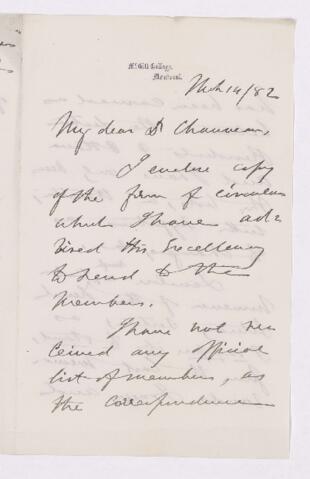 McGill College,
Montreal.
Mch 14/82
My dear Dr Chauveau,
I enclose copy
of the form of circular
which I have ad-
vised His Excellency
to send to the
members.
I have not re-
ceived any official
list of members, as
the correspondence